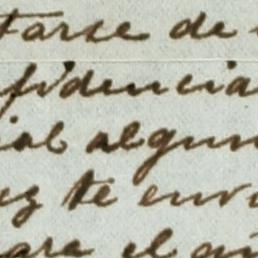 tarse de
fidencia
ial algun
ez te envi
para el añ